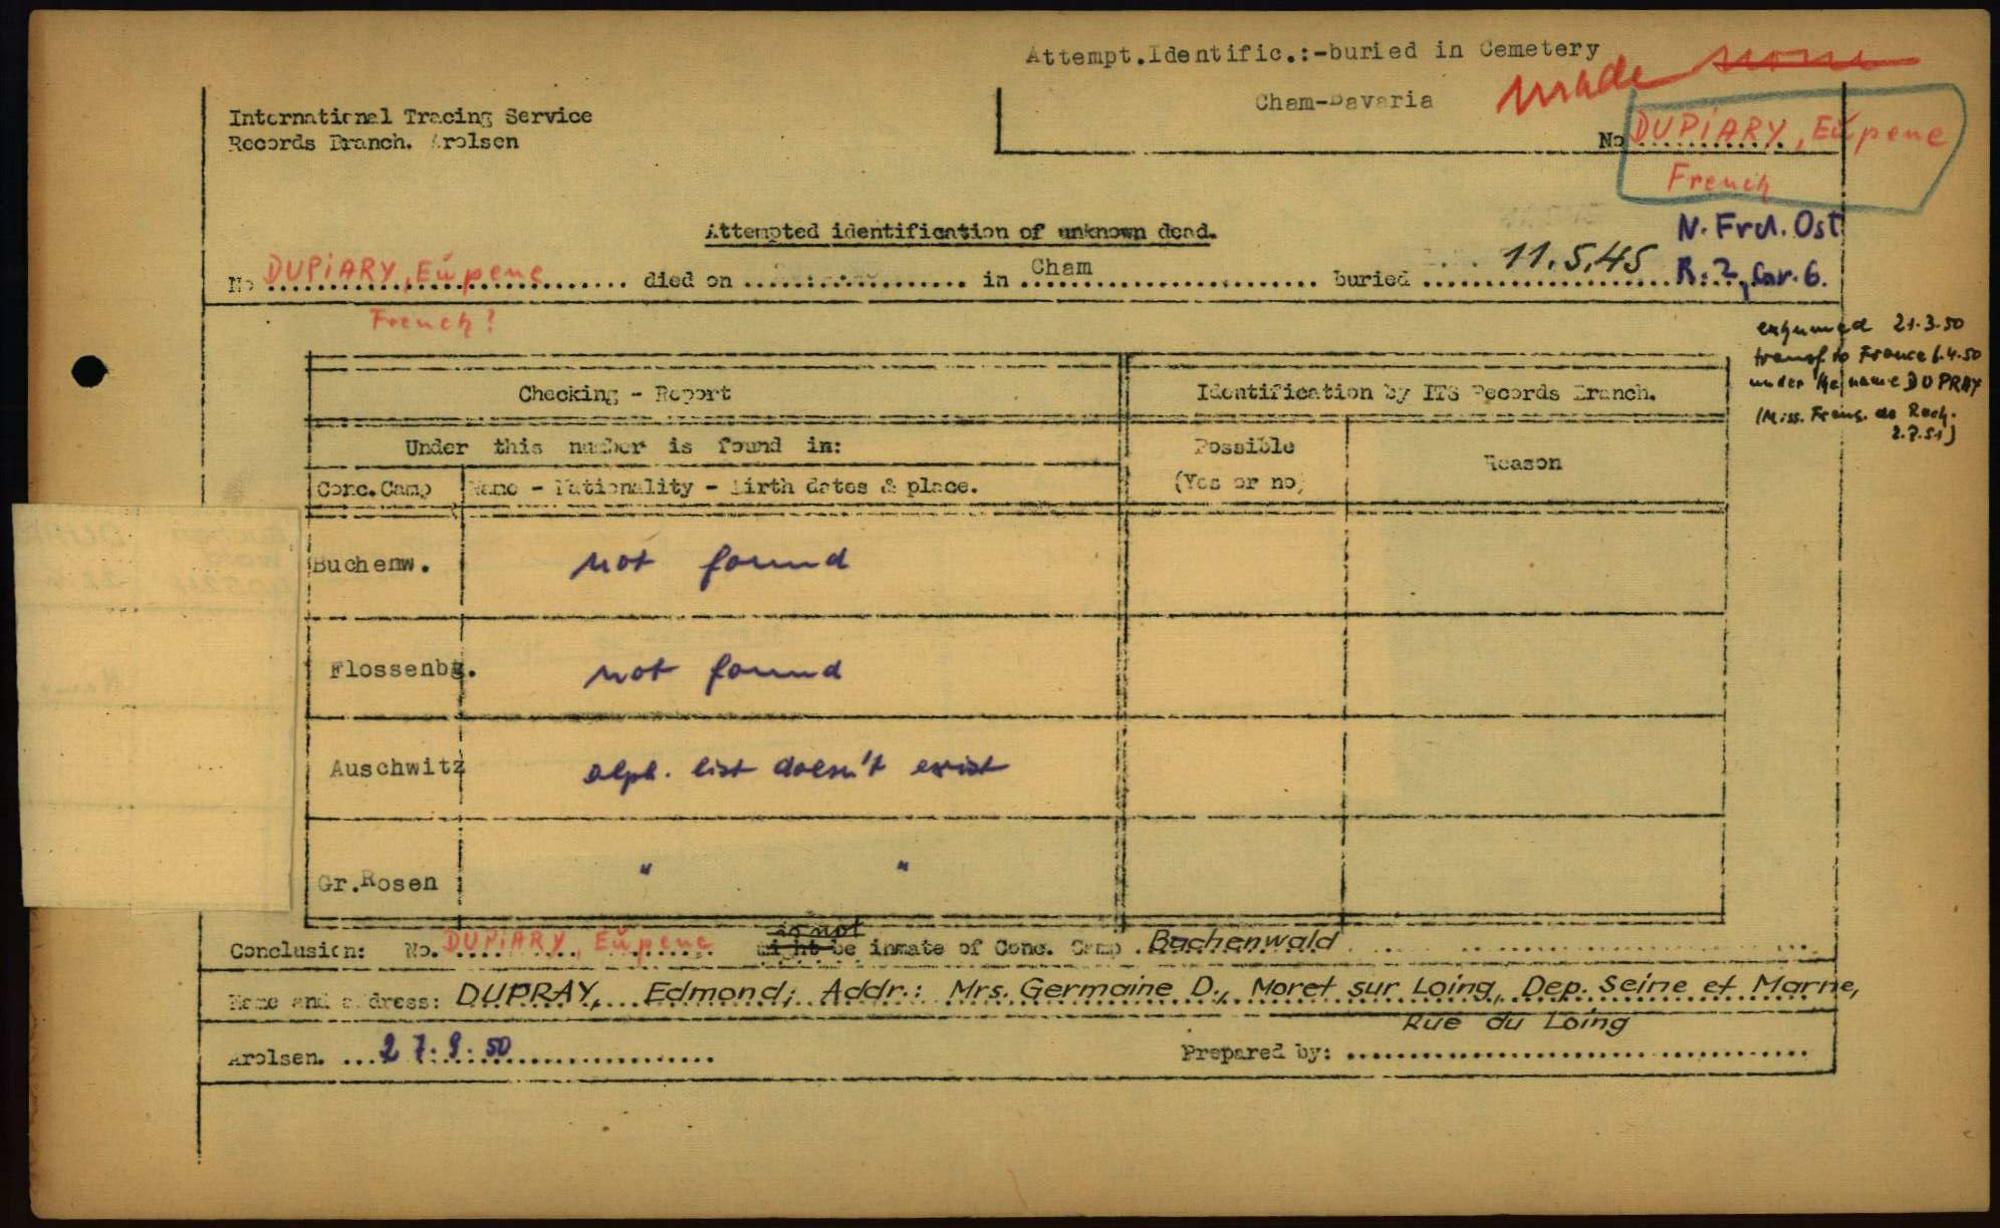 Attempt.Identific.:-buried in Cemetery
Cham-Bavaria
made none
International Tracing Service
Records Branch. Arolsen
No DUPiARY, Eŭpene
French
Attempted identification of unknown dead.
N. Frd. Ost
No DUPiARY, Eŭpene died on in Cham buried 11.5.45 R: 2, Gr. 6.
French?
exhumed 21.3.50
transf. to France 6.4.50
under the name DUPRAY
(Miss. Franç. de Rech.
2.7.51)
Checking - Report Identification by ITS Records Branch.
Under this number is found in: Possible (Yes or no) Reason
Conc.Camp Name - Nationality - Birth dates & place.
Buchenw. not found
Flossenbg. not found
Auschwitz alph. list doesn't exist
Gr.Rosen " "
is not
Conclusion: No. DUPiARY, Eŭpene might be inmate of Conc. Camp Buchenwald
Name and address: DUPRAY, Edmond; Addr.: Mrs. Germaine D., Moret sur Loing, Dep. Seine et Marne,
Rue du Loing
Arolsen. 27.9.50 Prepared by: